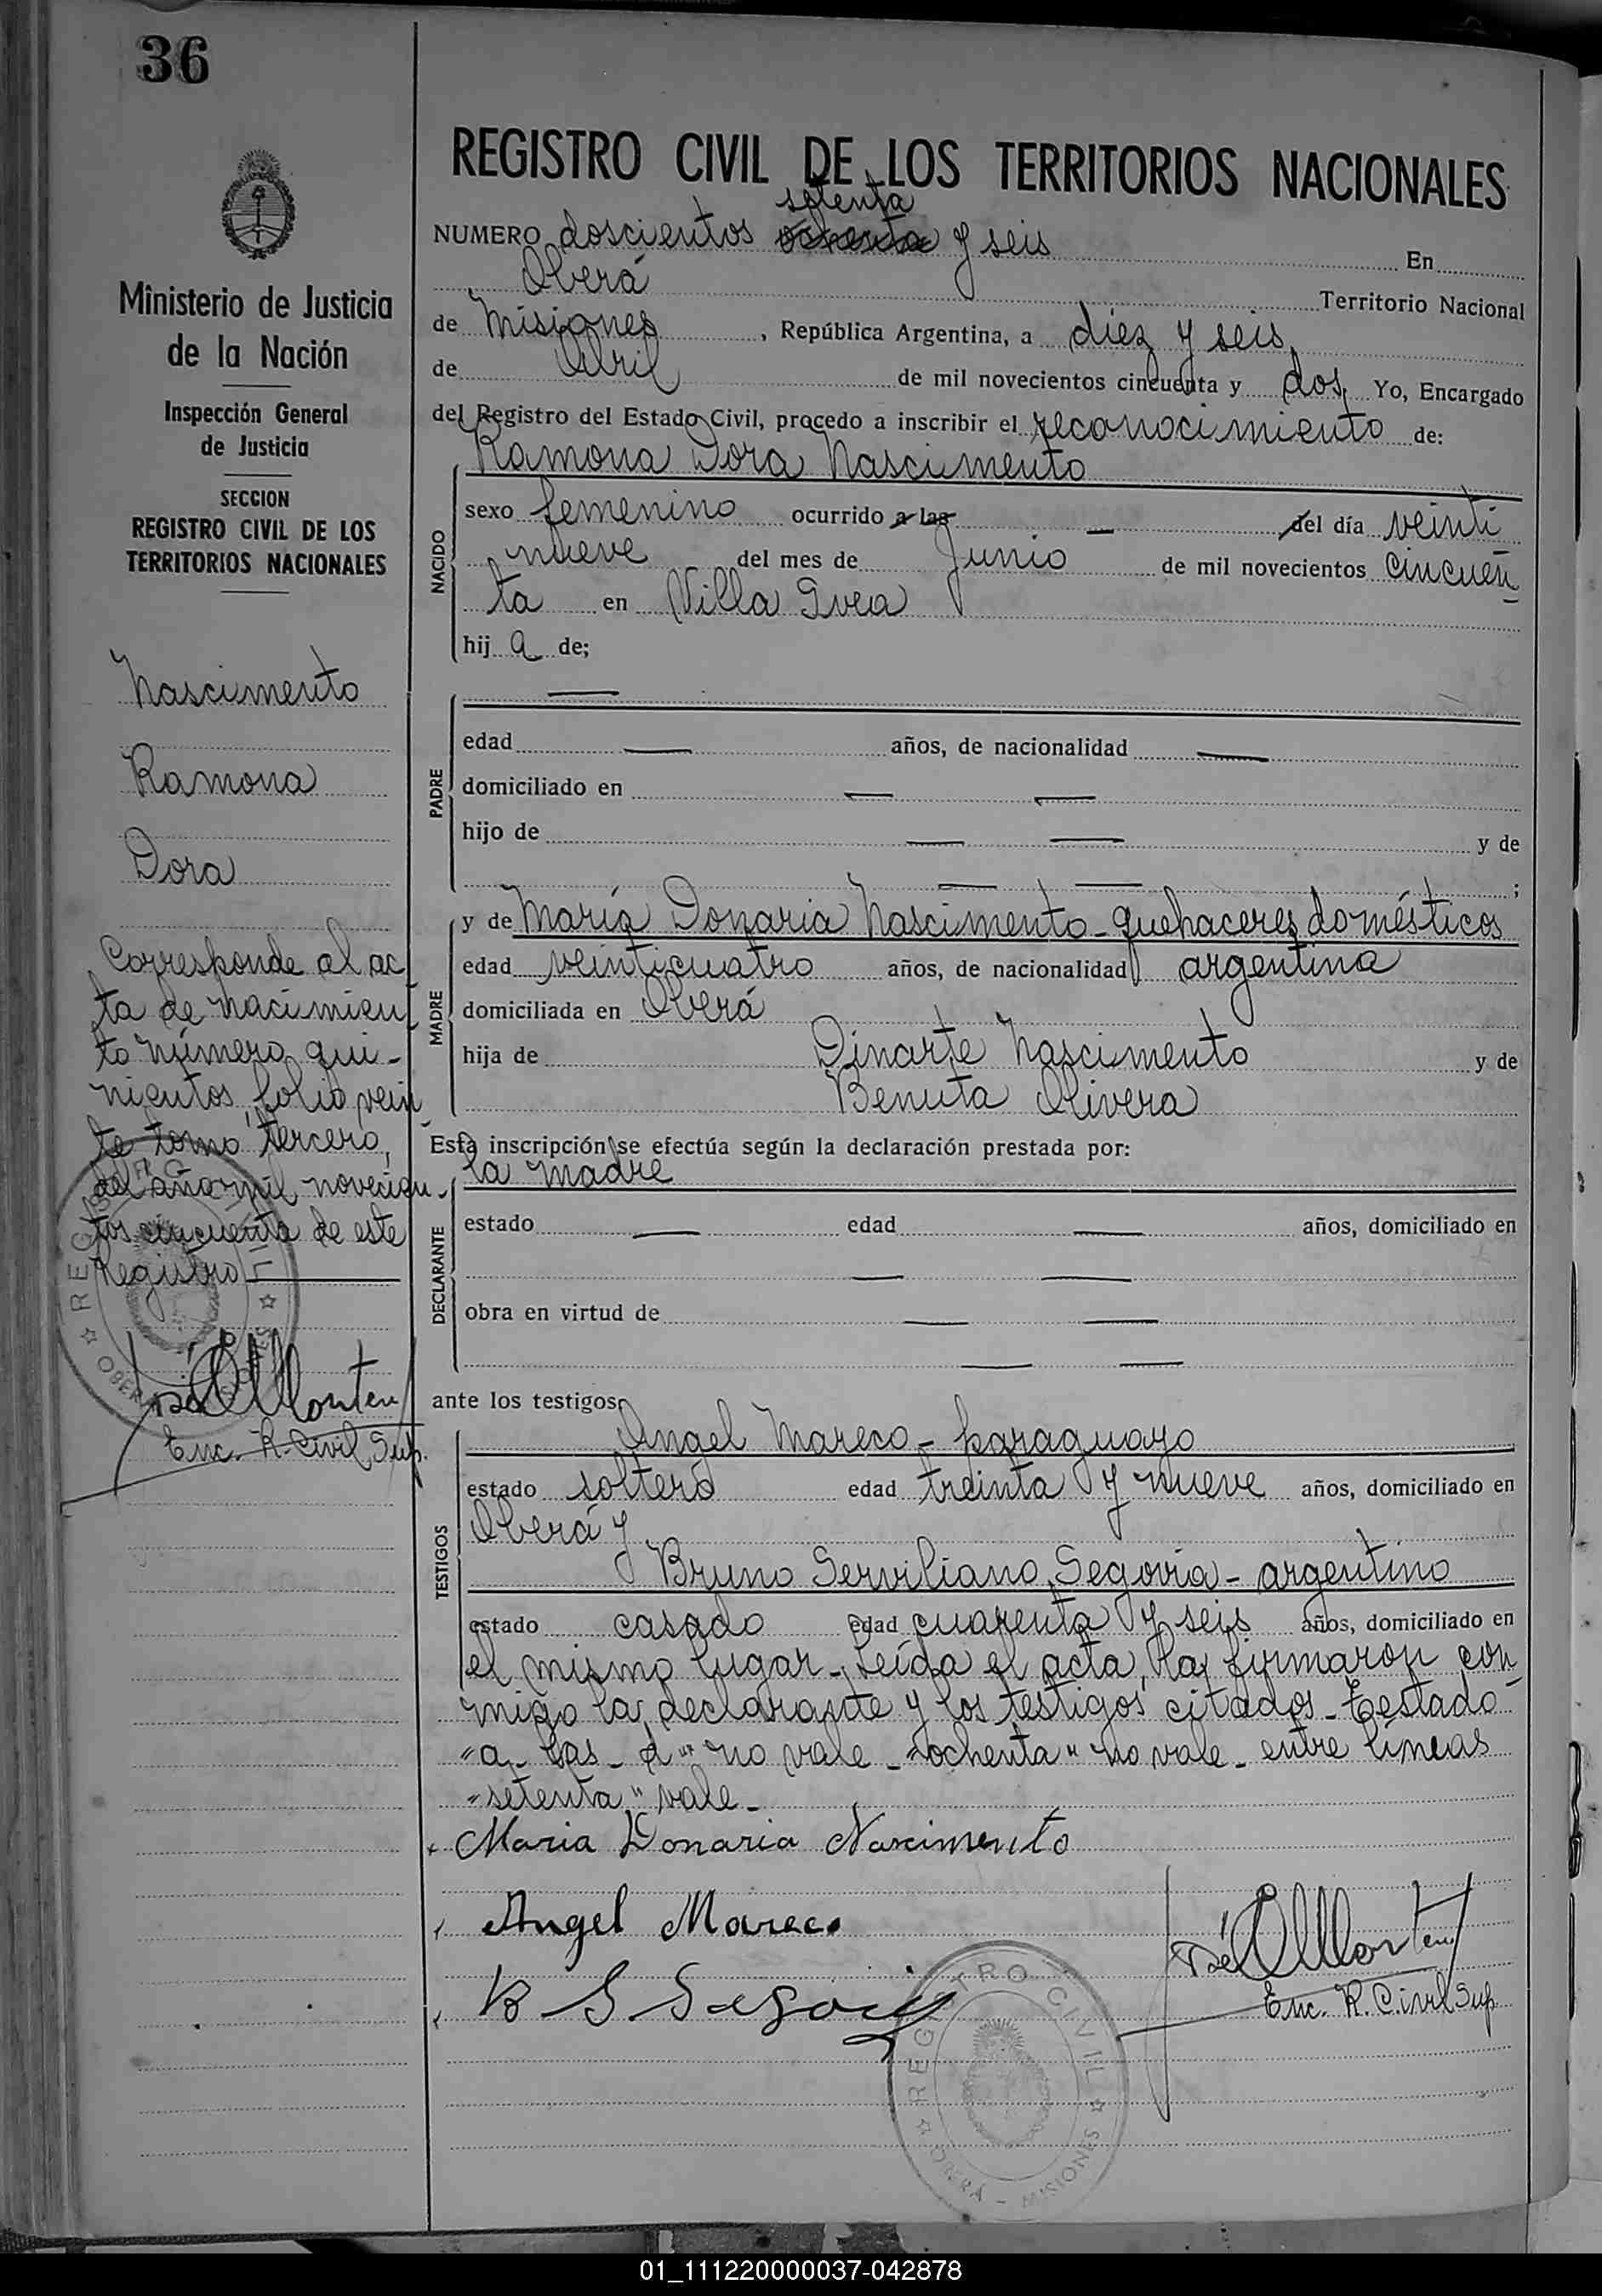 36
Ministerio de Justicia
de la Nación
Inspección General
de Justicia
SECCION
REGISTRO CIVIL DE LOS
TERRITORIOS NACIONALES
Nascimento
Ramona
Dora
Corresponde al ac
ta de nacimien
to número qui-
nientos, folio vein
te tomo tercero,
del año mil novecien-
tos cincuenta de este
Registro
Enc. R. Civil Sup.
REGISTRO CIVIL DE LOS TERRITORIOS NACIONALES
setenta
NUMERO doscientos ochenta y seis En
Oberá Territorio Nacional
de Misiones, República Argentina, a diez y seis
de Abril de mil novecientos cincuenta y dos. Yo, Encargado
del Registro del Estado Civil, procedo a inscribir el reconocimiento de:
Ramona Dora Nascimento
NACIDO
sexo femenino ocurrido a las — del día veinti
nueve del mes de Junio de mil novecientos cincuen
ta en Villa Svea
hij a de;
—
PADRE
edad — años, de nacionalidad —
domiciliado en — —
hijo de — — y de
— — ;
MADRE
y de María Donaria Nascimento - quehaceres domésticos
edad veinticuatro años, de nacionalidad argentina
domiciliada en Oberá
hija de Dinarte Nascimento y de
Benuta Olivera
Esta inscripción se efectúa según la declaración prestada por:
la madre
DECLARANTE
estado — edad — años, domiciliado en
— —
obra en virtud de — —
— —
ante los testigos
TESTIGOS
Angel Mareco - paraguayo
estado soltero edad treinta y nueve años, domiciliado en
Oberá y
Bruno Serviliano Segovia - argentino
estado casado edad cuarenta y seis años, domiciliado en
el mismo lugar - Leída el acta, la firmaron con
migo la declarante y los testigos citados - Testado
"a - las - d" no vale - "ochenta" no vale - entre líneas
"setenta" vale -
Maria Donaria Nascimento
Angel Mareco
B S Segovia
Enc. R. Civil Sup
REGISTRO CIVIL
OBERÁ - MISIONES
01_111220000037-042878